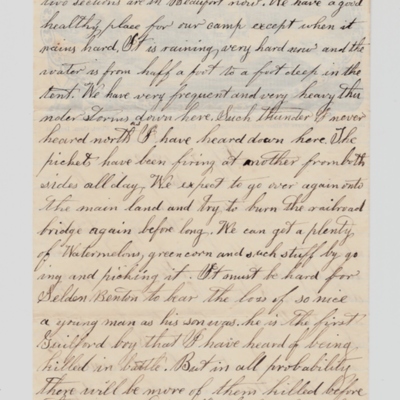 two sections are in Beaufort now. We have a good
healthy place for our camp except when it
rains hard, It is raining very hard now and the
water is from haff a foot to a foot deep in the
tent. We have very frequent and very heavy thu
nder storms down here. Such thunder I never
heard north as I have heard down here. The
pickets have been firing at another from both
sides all day, We expect to go over again onto
the main land and try to burn the railroad
bridge again before long. We can get a plenty
of Watermelons, greencorn and such stuff by go
ing and picking it. It must be hard for
Seldon Benton to hear the loss of so nice
a young man as his son was. he is the first
Guilford boy that I have heard of being
killed in battle. But in all probability
there will be more of them killed before